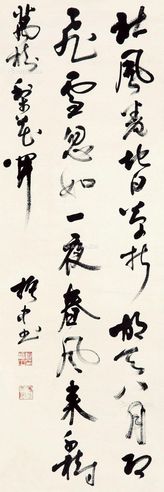 北風卷地白草折胡天八月即
飛雪忽如一夜春風来千樹
萬樹梨花開
中书